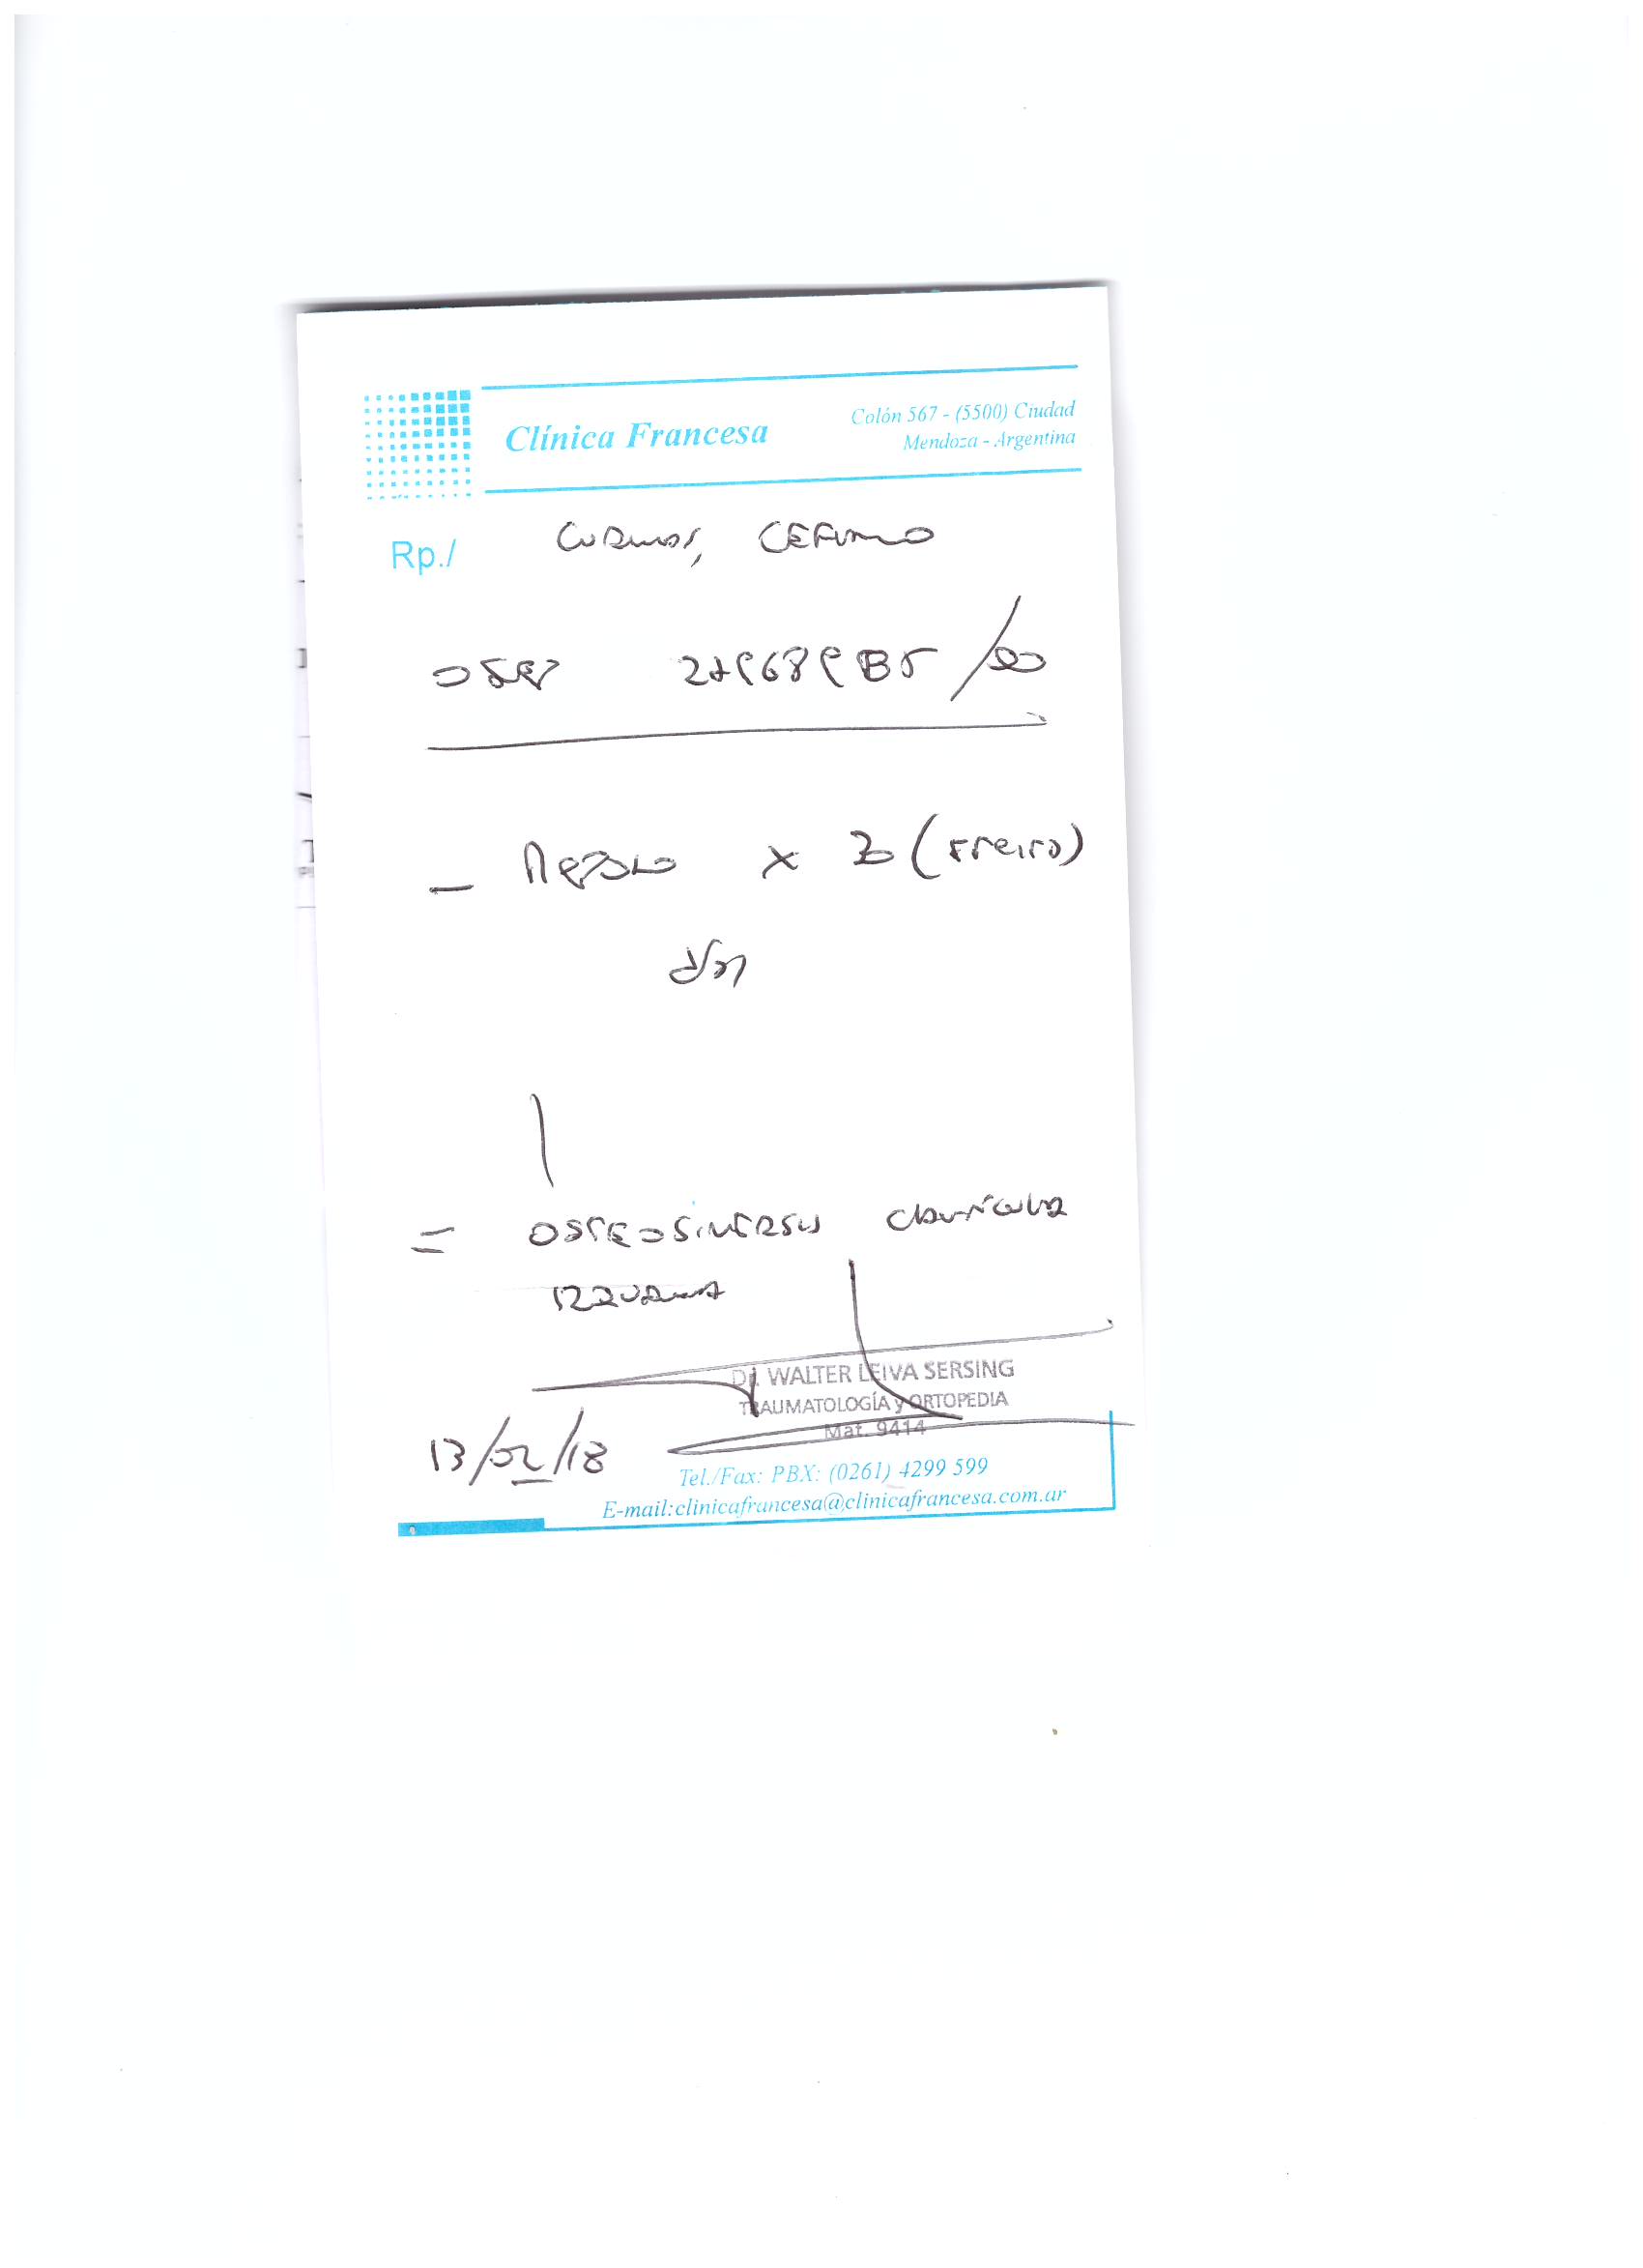 Clínica Francesa
Colón 567 - (5500) Ciudad
Mendoza - Argentina
Rp./
OSEP
x 30 (treinta)
= OSTEOSINTESIS clavicula
IZQUIERDA
Dr. WALTER LEIVA SERSING
TRAUMATOLOGÍA y ORTOPEDIA
Mat. 9414
13/02/18
Tel./Fax: PBX: (0261) 4299 599
E-mail:clinicafrancesa@clinicafrancesa.com.ar